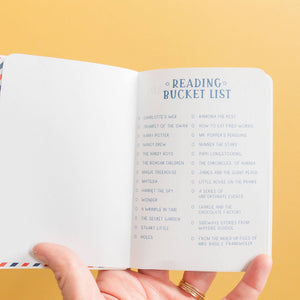 READING
BUCKET LIST
CHARLOTTE'S WEB
TRUMPET OF THE SWAN
HARRY POTTER
NANCY DREW
THE HARDY BOYS
THE BOXCAR CHILDREN
MAGIC TREEHOUSE
MATILDA
HARRIET THE SPY
WONDER
A WRINKLE IN TIME
THE SECRET GARDEN
STUART LITTLE
HOLES
RAMONA THE PEST
HOW TO EAT FRIED WORMS
MR. POPPER'S PENGUINS
NUMBER THE STARS
PIPPI LONGSTOCKING
THE CHRONICLES OF NARNIA
JAMES AND THE GIANT PEACH
LITTLE HOUSE ON THE PRAIRIE
A SERIES OF
UNFORTUNATE EVENTS
CHARLIE AND THE
CHOCOLATE FACTORY
SIDEWAYS STORIES FROM
WAYSIDE SCHOOL
FROM THE MIXED-UP FILES OF
MRS. BASIL E. FRANKWEILER